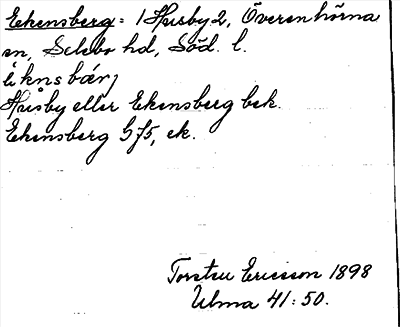 Ekensberg: 1 Husby 2, Överenhörna
sn, Selebo hd, Söd. l.
Husby eller Ekensberg bek.
Ekensberg G75, ek.
Torsten Ericsson 1898
Ulma 41:50.